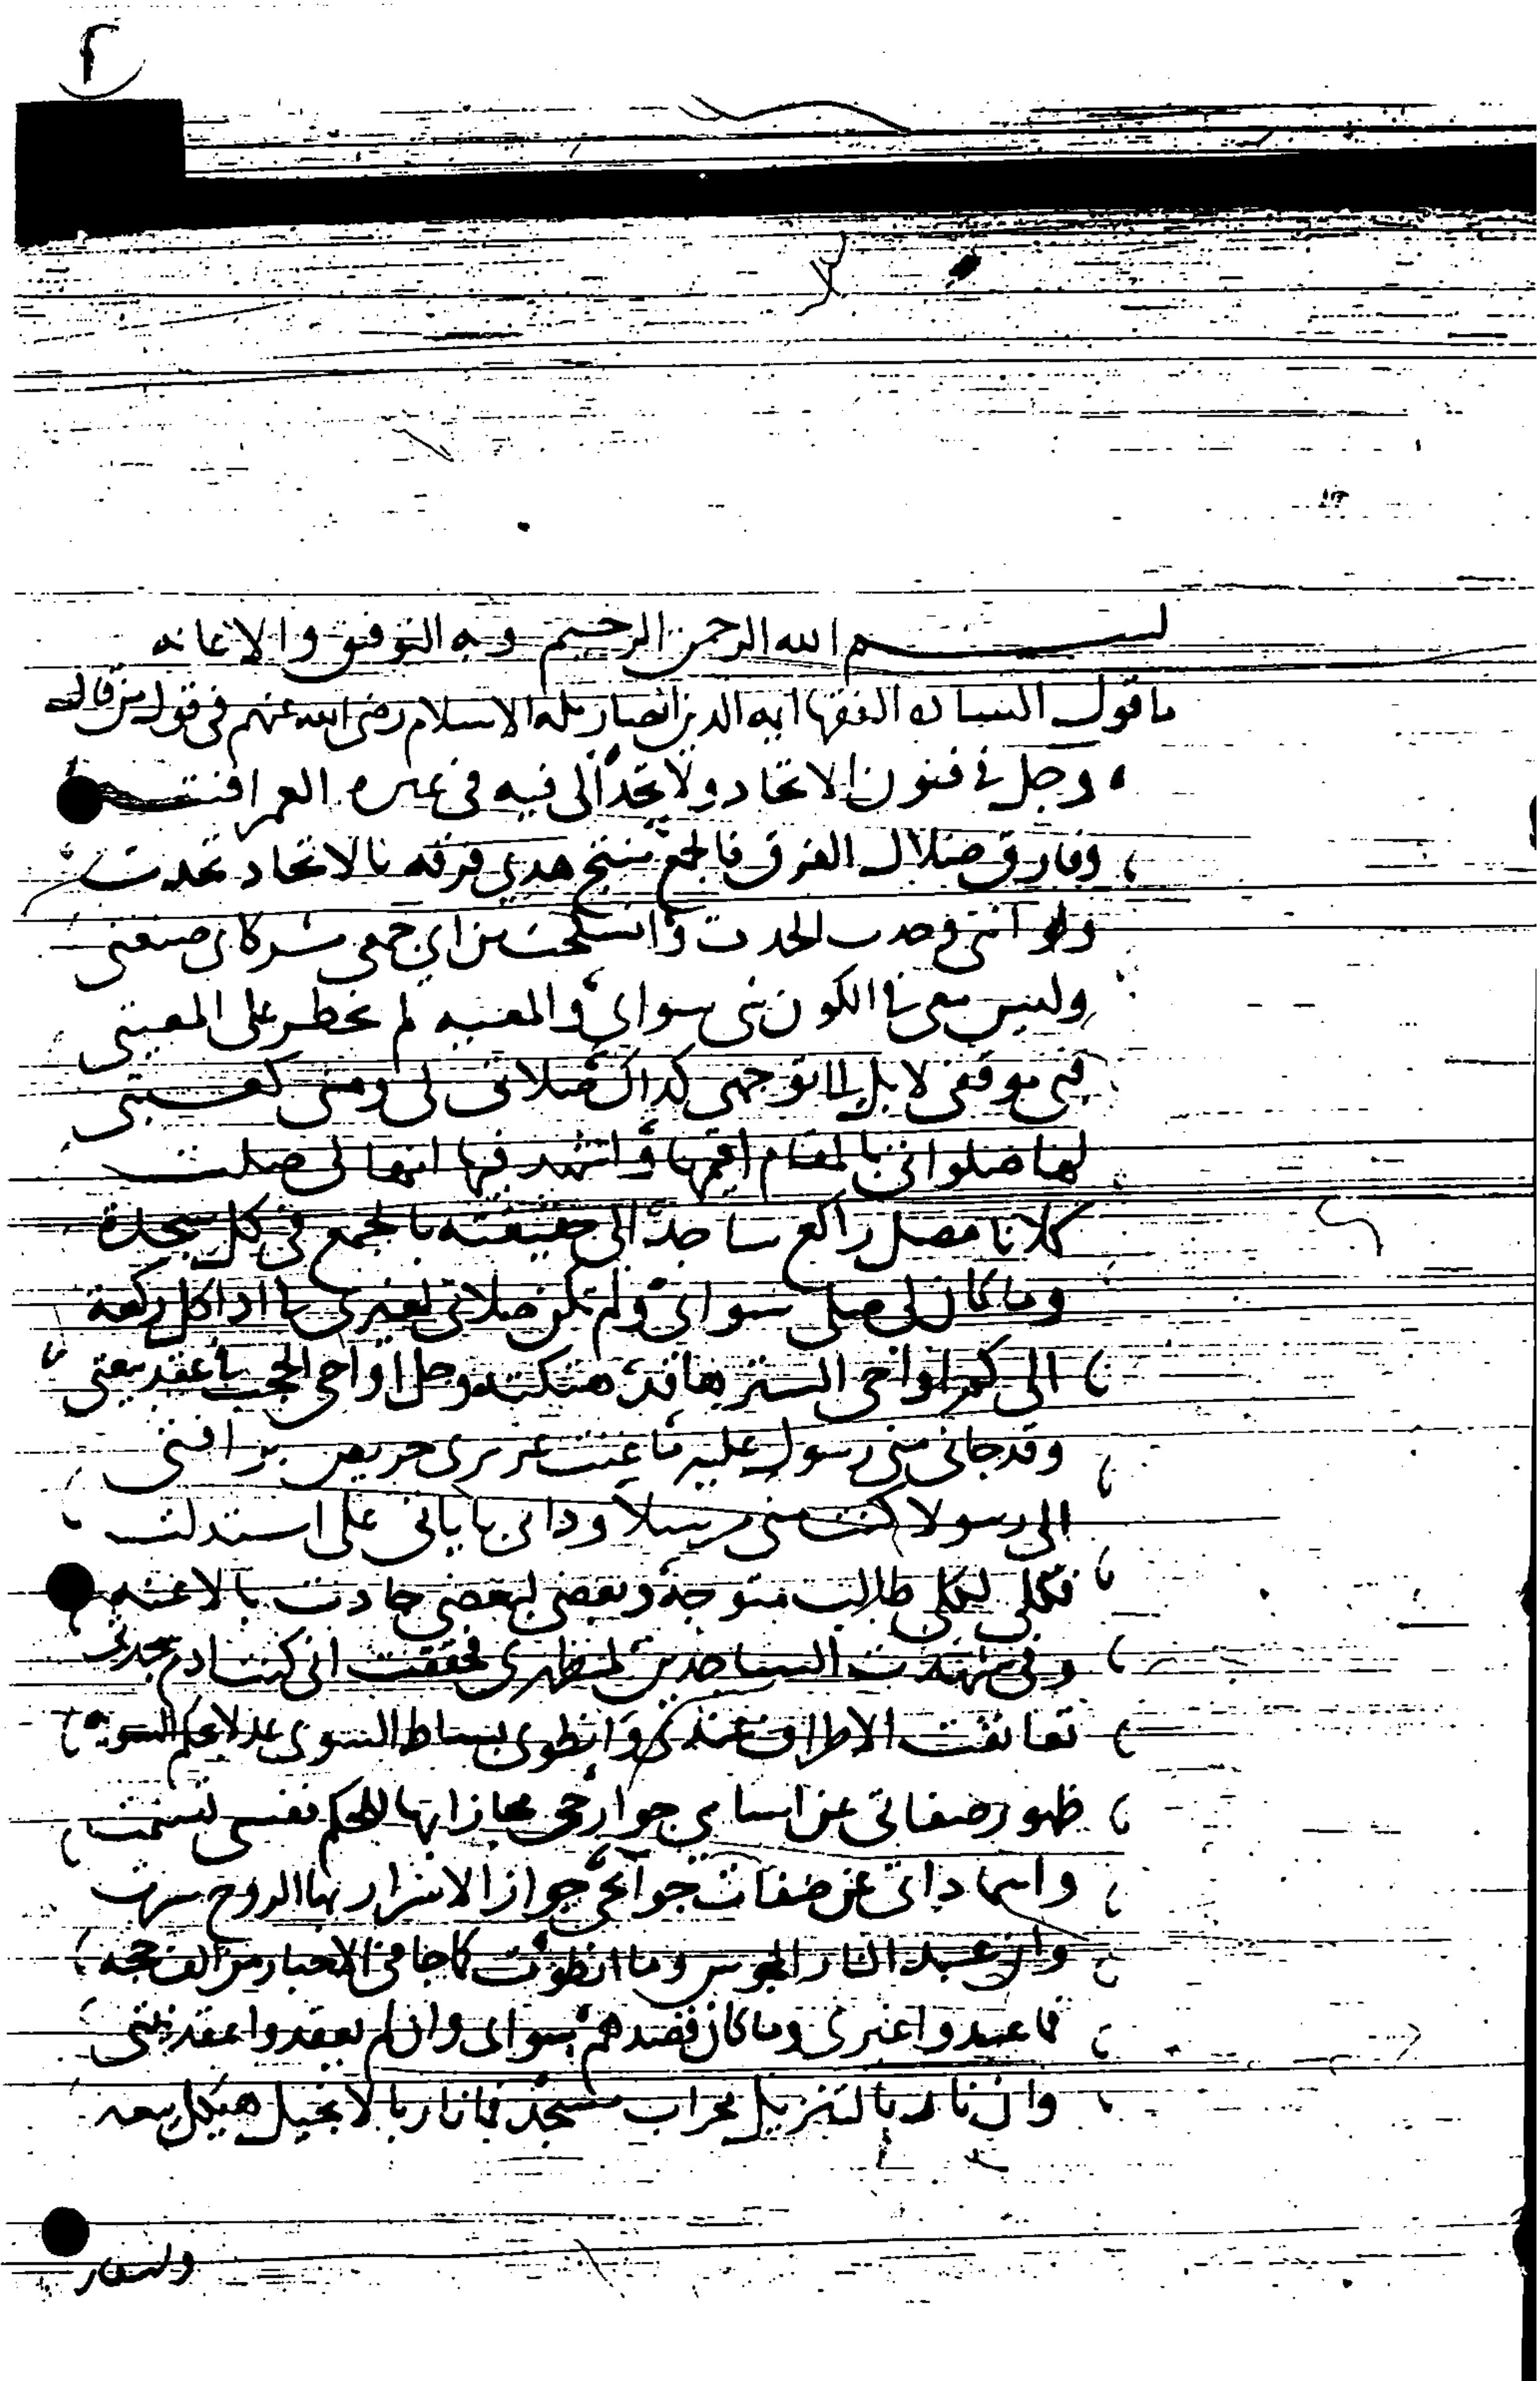 ٢
بسم الله الرحمن الرحيم وبه التوفيق والاعانه
ما قول الساده الفقها ايمه الدين انصار مله الاسلام رضى الله عنهم فى قول من قال
وجل فى فنون الاتحاد ولا تحد الى فيه فى غيره العمر افنت
وفارق ضلال الفرق فالجمع منتج هدى فرقه بالاتحاد تحدت
ولو اننى وحدت الحدت وانسلخت من اى جمعى شركا بى صنعتى
وليس معى فى الكون شى سواى والمعيه لم تخطر على المعيتى
فبى موقفى لا بل الى توجهى كداك صلاتى لى ومنى كعبتى
لها صلواتى بالمقام اقيمها واشهد فيها انها لى صلت
كلانا مصل راكع ساجد الى حقيقته بالجمع فى كل سجدة
وما كان لى صلى سواى ولم تكن صلاتى لغيرى فى ادا كل ركعة
الى كم اواخى الستر ها قد هتكته وحل اواخى الحجب فى عقد بيعتى
وقد جانى منى رسول عليه ما عنت عزيزى حريص برافتى
الى رسولا كنت منى مرسلا وداتى باياتى على استدلت
فكلى لكلى طالب متوجه وبعضى لبعضى جادت بالاعنه
وفى شهدت الساجدين لمظهرى فحققت انى كنت ادم سجدتى
تعانقت الاطراف عندى وانطوى بساط السوى عدلا بحكم السويه
ظهور صفاتى عن اسامى جوارحى مجازا بها للحكم نفسى تسمت
واسما داتى عن صفات جوانحى جوازا لاسرار بها الروح سرت
وان عبد النار المجوس وما انطفت كما جا فى الاخبار من الف حجه
فما عبدوا غيرى وما كان قصدهم سواى وان لم يعقدوا عقد نيتى
وان نار بالتنزيل محراب مسجد فما نار بالانجيل هيكل بيعه